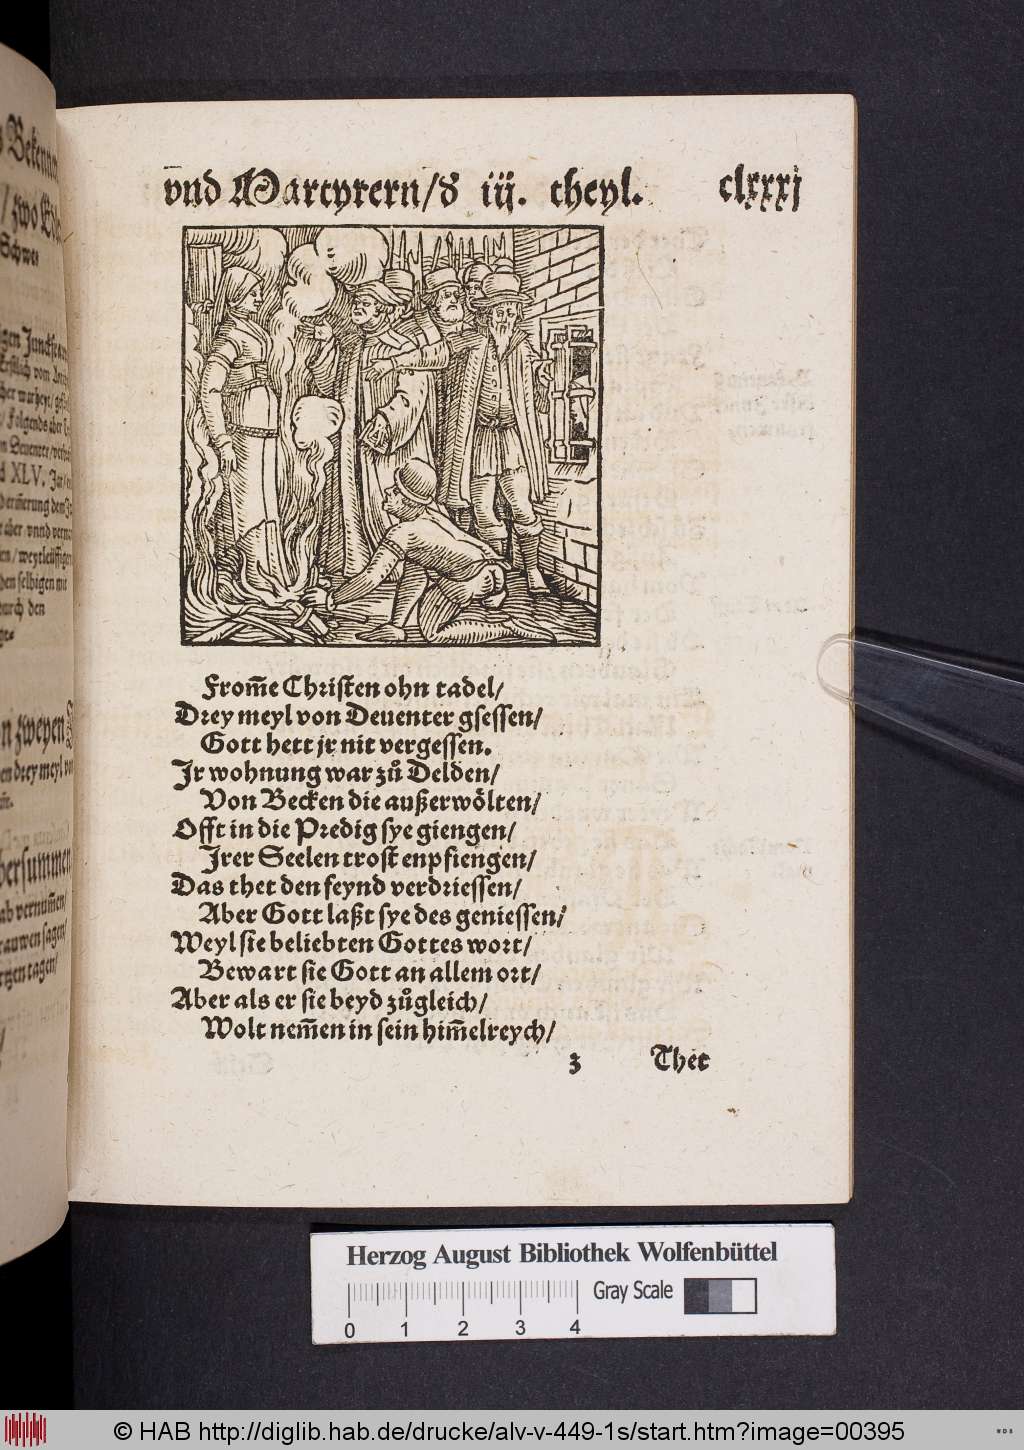 vnd Martyrern/ď iij. theyl. clxxxj
From̃e Christen ohn tadel/
Drey meyl von Deuenter gsessen/
Gott hett jr nit vergessen.
Jr wohnung war zů Delden/
Von Becken die außerwölten/
Offt in die Predig sye giengen/
Jrer Seelen trost enpfiengen/
Das thet den feynd verdriessen/
Aber Gott laßt sye des geniessen/
Weyl sie beliebten Gottes wort/
Bewart sie Gott an allem ort/
Aber als er sie beyd zůgleich/
Wolt nem̃en in sein him̃elreych/
z Thet
Bekenner
/ zwo Edle
Schwe-
XLV. Jar
durch den
ge-
n zweyen
en drey meyl vo
versummen
ab vernum̃en/
rauwen sagen/
rgen tagen/
Herzog August Bibliothek Wolfenbüttel
Gray Scale
0 1 2 3 4
© HAB http://diglib.hab.de/drucke/alv-v-449-1s/start.htm?image=00395
WDB